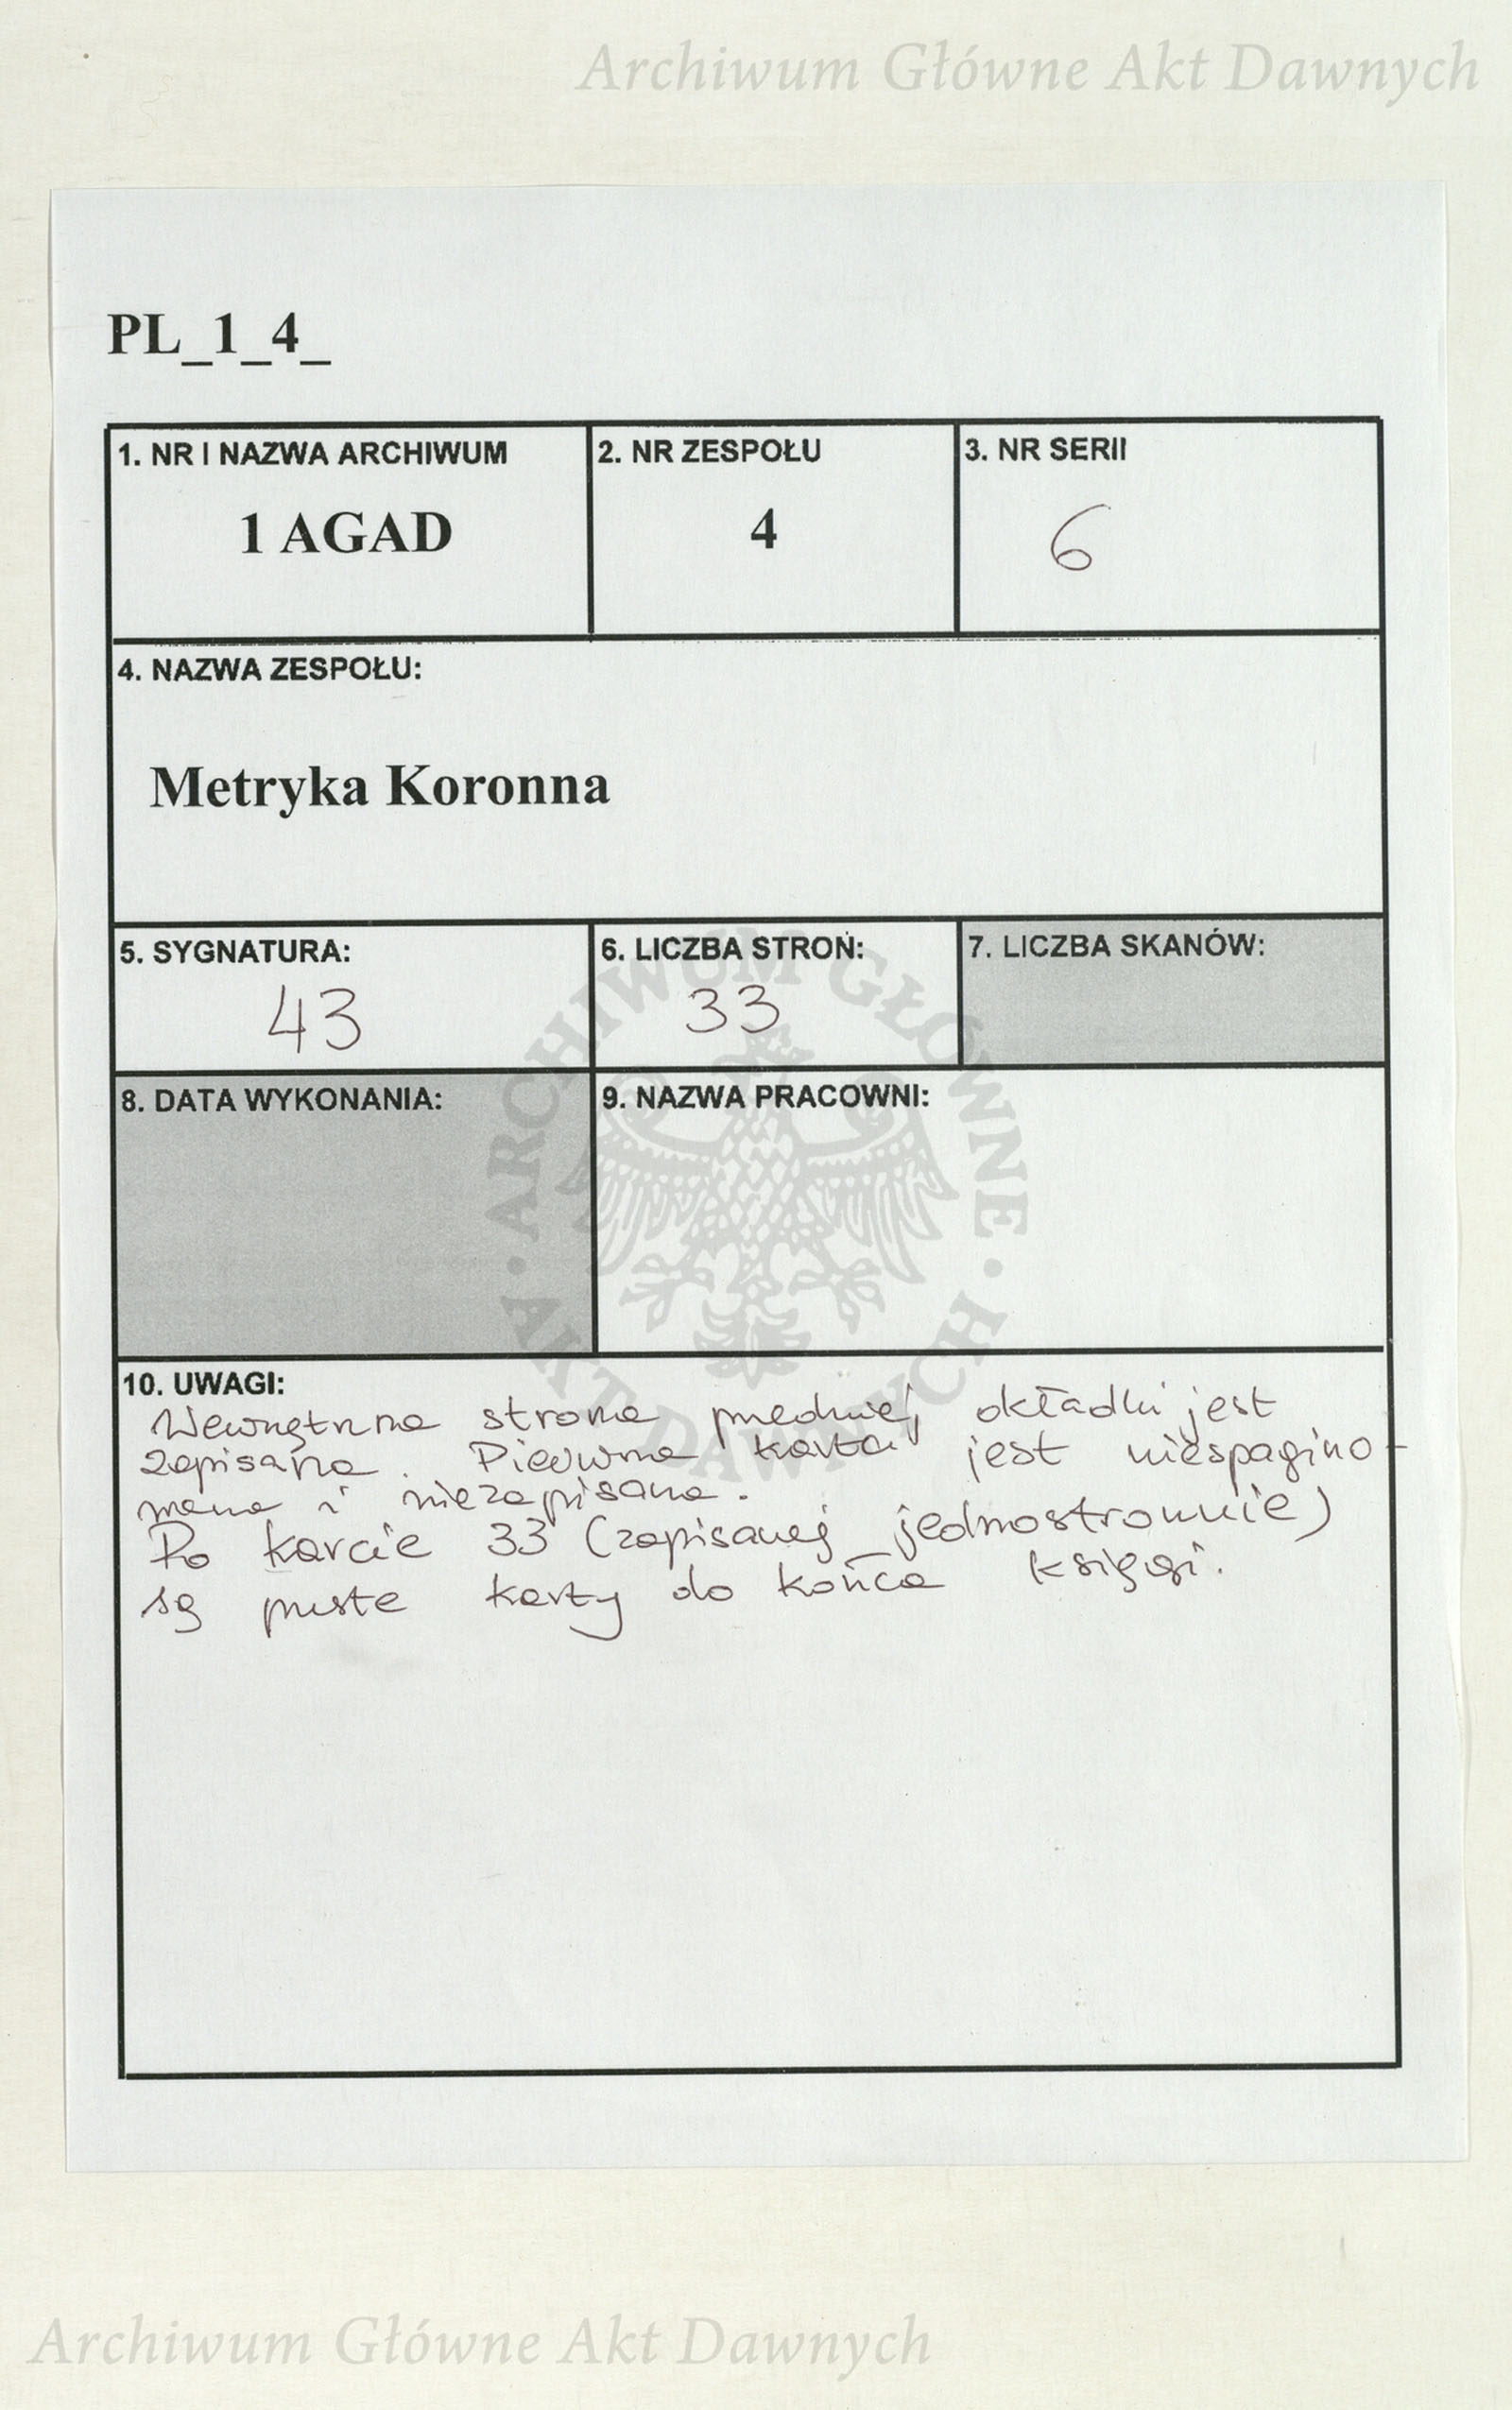 Archiwum Główne Akt Dawnych
PL_1_4_
1. NR I NAZWA ARCHIWUM
1 AGAD
2. NR ZESPOŁU
4
3. NR SERII
6
4. NAZWA ZESPOŁU:
Metryka Koronna
5. SYGNATURA:
43
6. LICZBA STRON:
33
7. LICZBA SKANÓW:
8. DATA WYKONANIA:
9. NAZWA PRACOWNI:
ARCHIWUM GŁÓWNE · AKT DAWNYCH ·
10. UWAGI:
Wewnętrzna strona przedniej okładki jest
zapisana. Pierwsza karta jest niespagino-
wana i niezapisana.
Po karcie 33 (zapisanej jednostronnie)
są puste karty do końca księgi.
Archiwum Główne Akt Dawnych